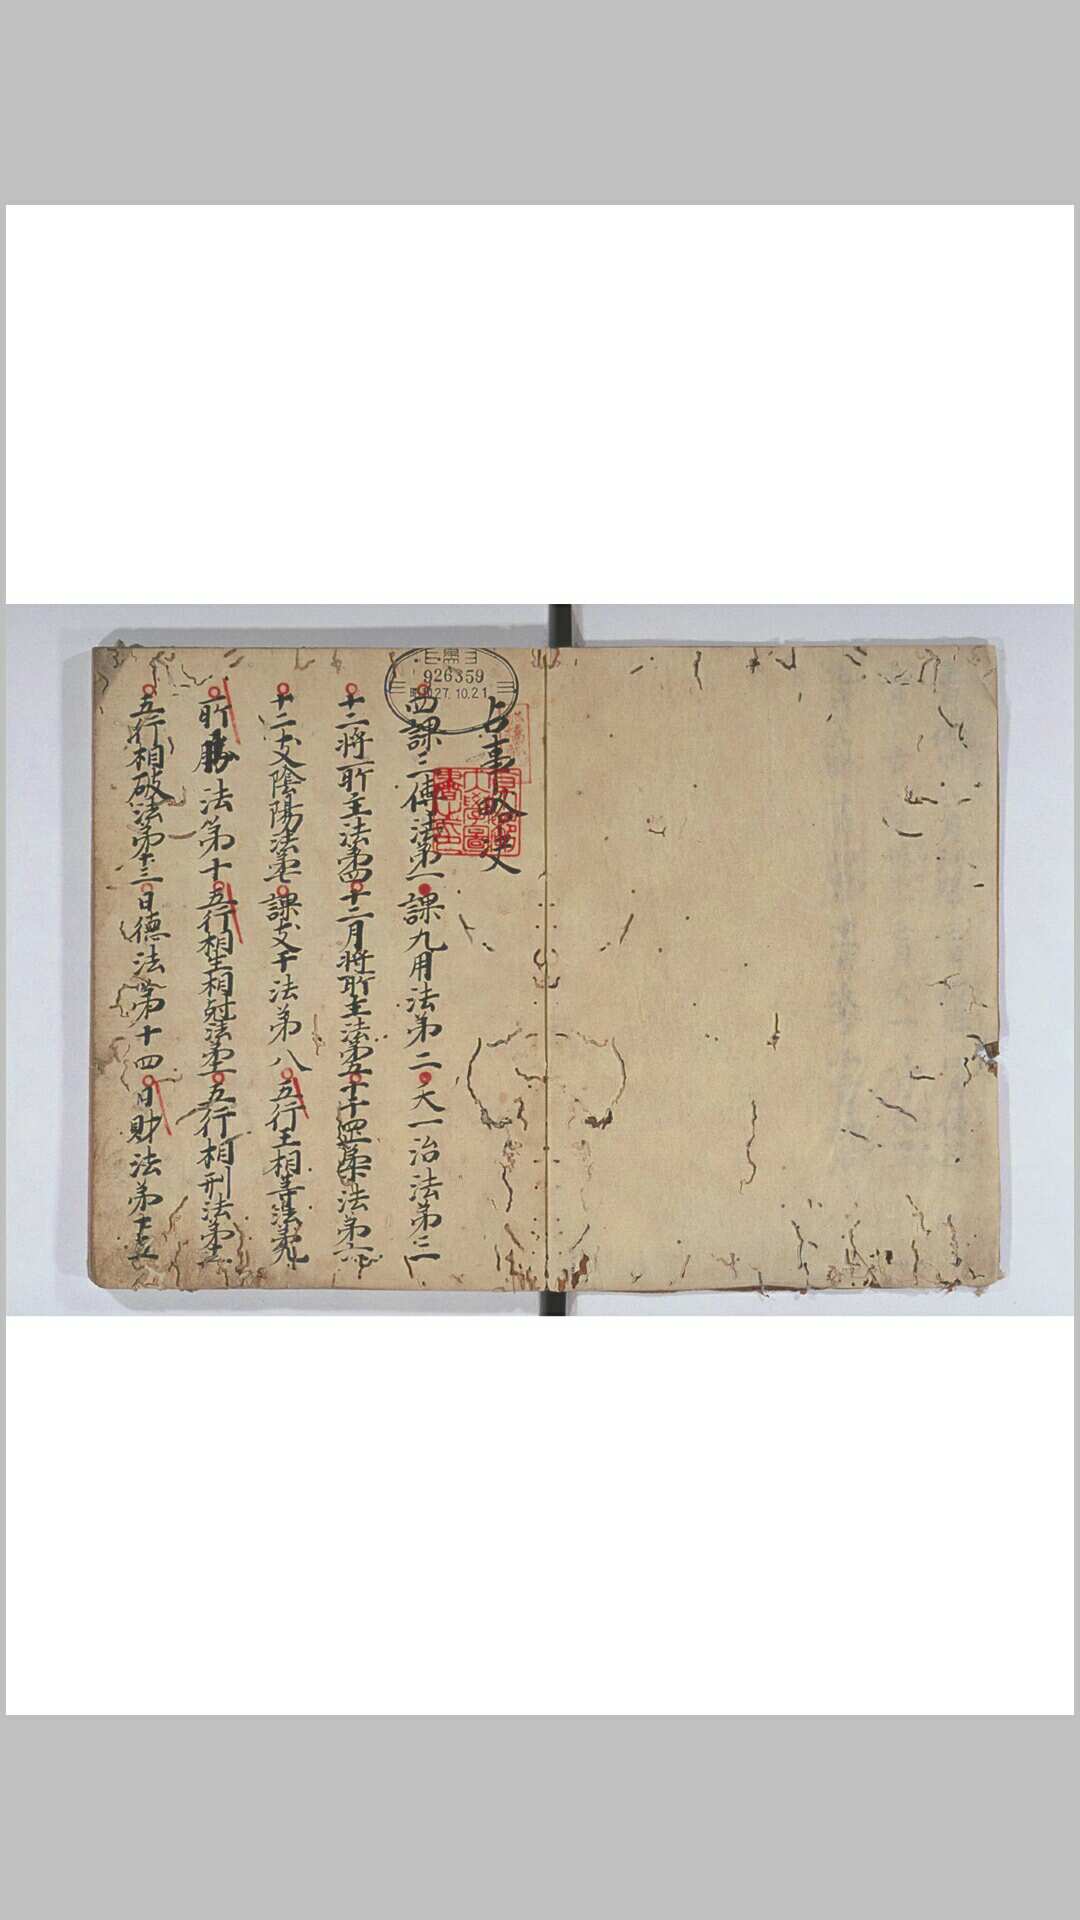 占事略决
四課三傳法第一 課九用法第二 天一治法第三
十二將所主法第四 十二月將所主法第五 十干罡柔法第六
十二支陰陽法第七 課支干法第八 五行王相等法第九
所勝法第十 五行相生相剋法第十一 五行相刑法第十二
五行相破法第十三 日德法第十四 日財法第十五
926359
昭27.10.21